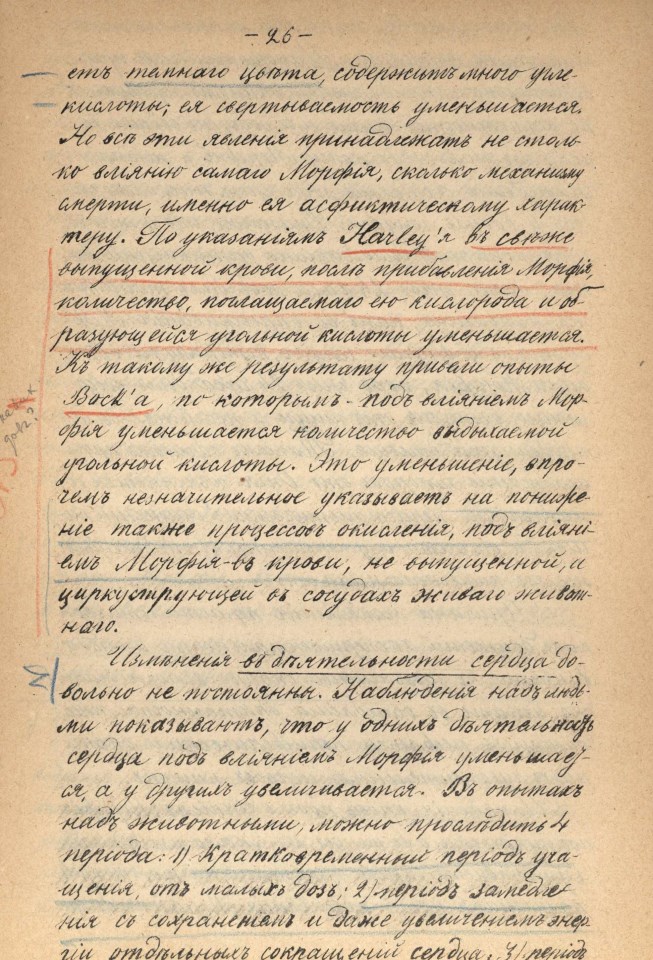 - 26 -
етъ темнаго цвѣта, содержитъ много угле-
кислоты; ея свертываемость уменьшается.
Но всѣ эти явленія принадлежатъ не столь-
ко вліянію самаго Морфія, сколько механизму
смерти, именно ея асфиктическому харак-
теру. По указаніямъ Harley'я въ свѣже
выпущенной крови, послѣ прибавленія Морфія,
количество, поглощаемаго ею кислорода и об-
разующейся угольной кислоты уменьшается.
Къ такому же результату привели опыты
Bock'а, по которымъ - подъ вліяніемъ Мор-
фія уменьшается количество выдыхаемой
угольной кислоты. Это уменьшеніе, впро-
чемъ незначительное указываетъ на пониже-
ніе также процессовъ окисленія, подъ вліяні-
емъ Морфія - въ крови, не выпущенной, и
циркулирующей въ сосудахъ живаго живот-
наго.
Измѣненія въ дѣятельности сердца до-
вольно не постоянны. Наблюденія надъ людь-
ми показываютъ, что у однихъ дѣятельность
сердца подъ вліяніемъ Морфія уменьшает-
ся, а у другихъ увеличивается. Въ опытахъ
надъ животными, можно прослѣдить 4
періода: 1) Кратковременный періодъ уча-
щенія, отъ малыхъ дозъ; 2) періодъ замедле-
нія съ сохраненіемъ и даже увеличеніемъ энер-
гіи отдѣльныхъ сокращеній сердца; 3) періодъ